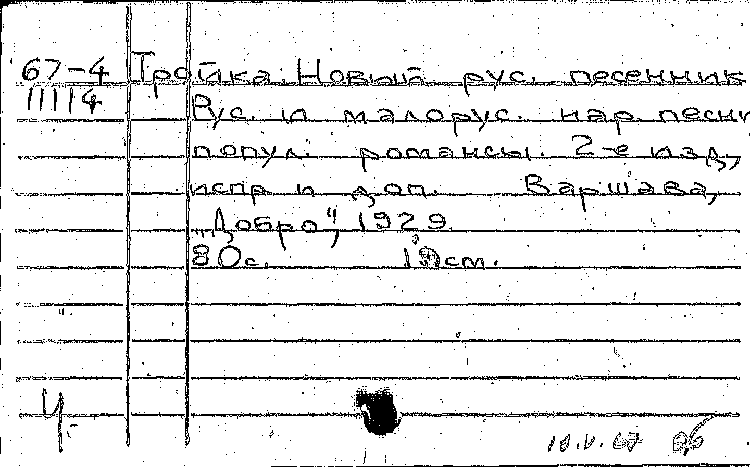 67-4 Тройка. Новый рус. песенник
11114 Рус. и малорус. нар. песни
попул. романсы. 2-е изд.,
испр и доп. Варшава,
„Добро", 1929
80с. см.
Ч.
18.V.67